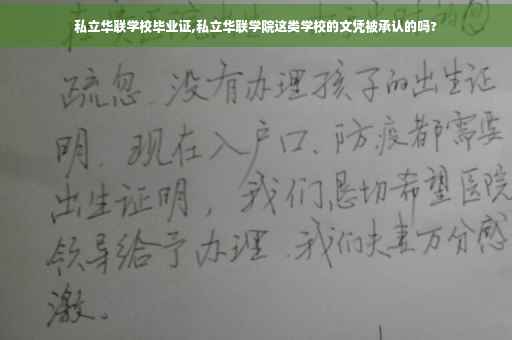 私立华联学校毕业证,私立华联学院这类学校的文凭被承认的吗?
疏忽.没有办理孩子的出生证
明.现在入户口、防疫都需要
出生证明，我们恳切希望医院
领导给予办理.我们夫妻万分感
激。